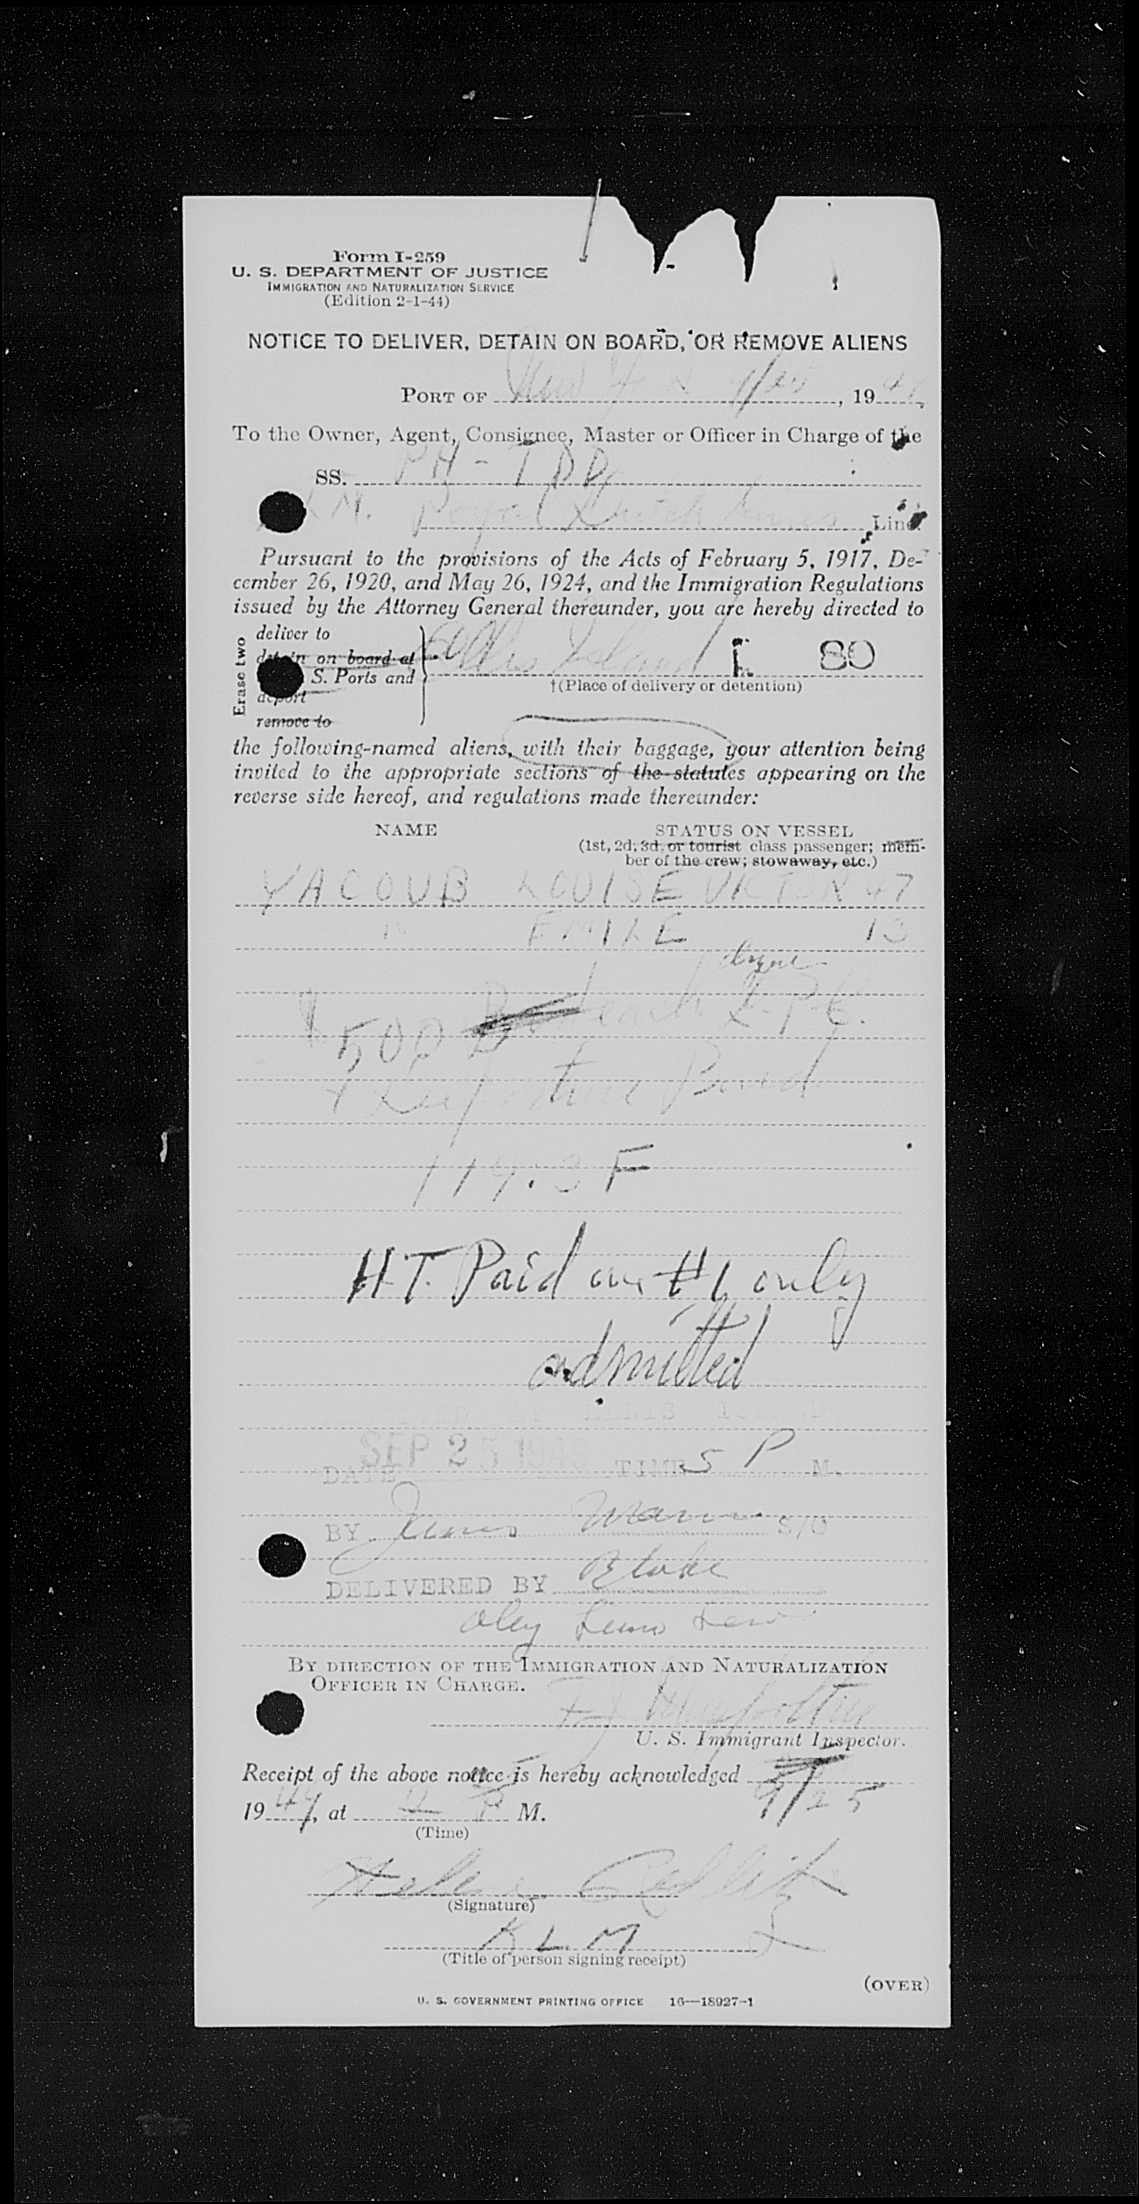 Form I-259
U. S. DEPARTMENT OF JUSTICE
IMMIGRATION AND NATURALIZATION SERVICE
(Edition 2-1-44)
NOTICE TO DELIVER, DETAIN ON BOARD, OR REMOVE ALIENS
PORT OF New Y , 19
To the Owner, Agent, Consignee, Master or Officer in Charge of the
SS. PH-TDD
Royal Dutch Lines Line.
Pursuant to the provisions of the Acts of February 5, 1917, De-
cember 26, 1920, and May 26, 1924, and the Immigration Regulations
issued by the Attorney General thereunder, you are hereby directed to
Erase two
deliver to
detain on board at
S. Ports and
deport
remove to
Ellis Island I. 80
†(Place of delivery or detention)
the following-named aliens, with their baggage, your attention being
invited to the appropriate sections of the statutes appearing on the
reverse side hereof, and regulations made thereunder:
NAME STATUS ON VESSEL
(1st, 2d, 3d, or tourist class passenger; mem-
ber of the crew; stowaway, etc.)
YACOUB LOUISE VICTOR 47
" EMILE 13
$500 each L.P.C.
+ Departure Bond
F
H.T. Paid on #1 only
admitted
DATE SEP 25 TIME 5 P M.
BY S/O
DELIVERED BY Blake
BY DIRECTION OF THE IMMIGRATION AND NATURALIZATION
OFFICER IN CHARGE.
U. S. Immigrant Inspector.
Receipt of the above notice is hereby acknowledged 9/25
19 , at P M.
(Time)
Helene
(Signature)
KLM
(Title of person signing receipt)
(OVER)
U. S. GOVERNMENT PRINTING OFFICE 16—18927-1